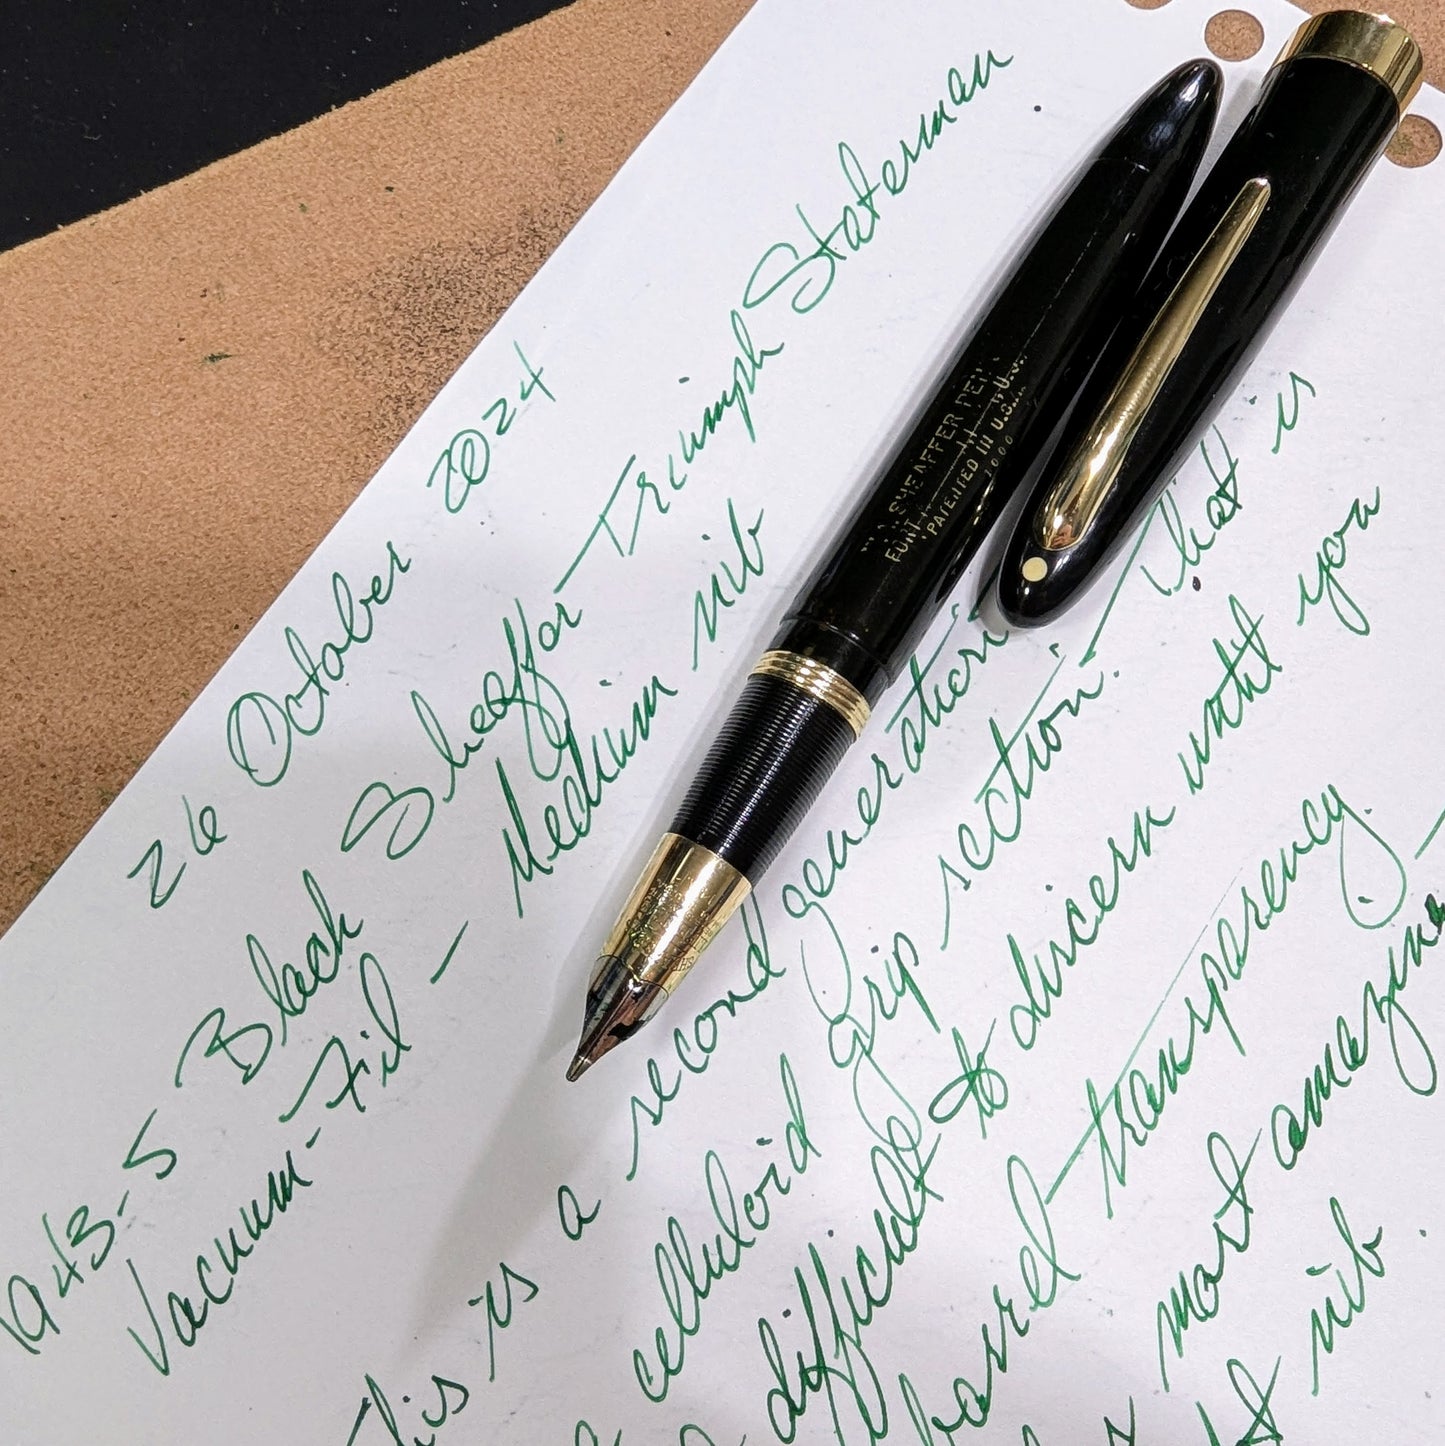 26 October 2024
1943-5 Black Sheaffer Triumph Statesman
Vacuum-Fil - Medium nib
This is a second generation
celluloid grip section. That is
difficult to discern with you
barrel transparency.
most amazing
nib.
SHEAFFER PEN
PATENTED IN U.S.
1000